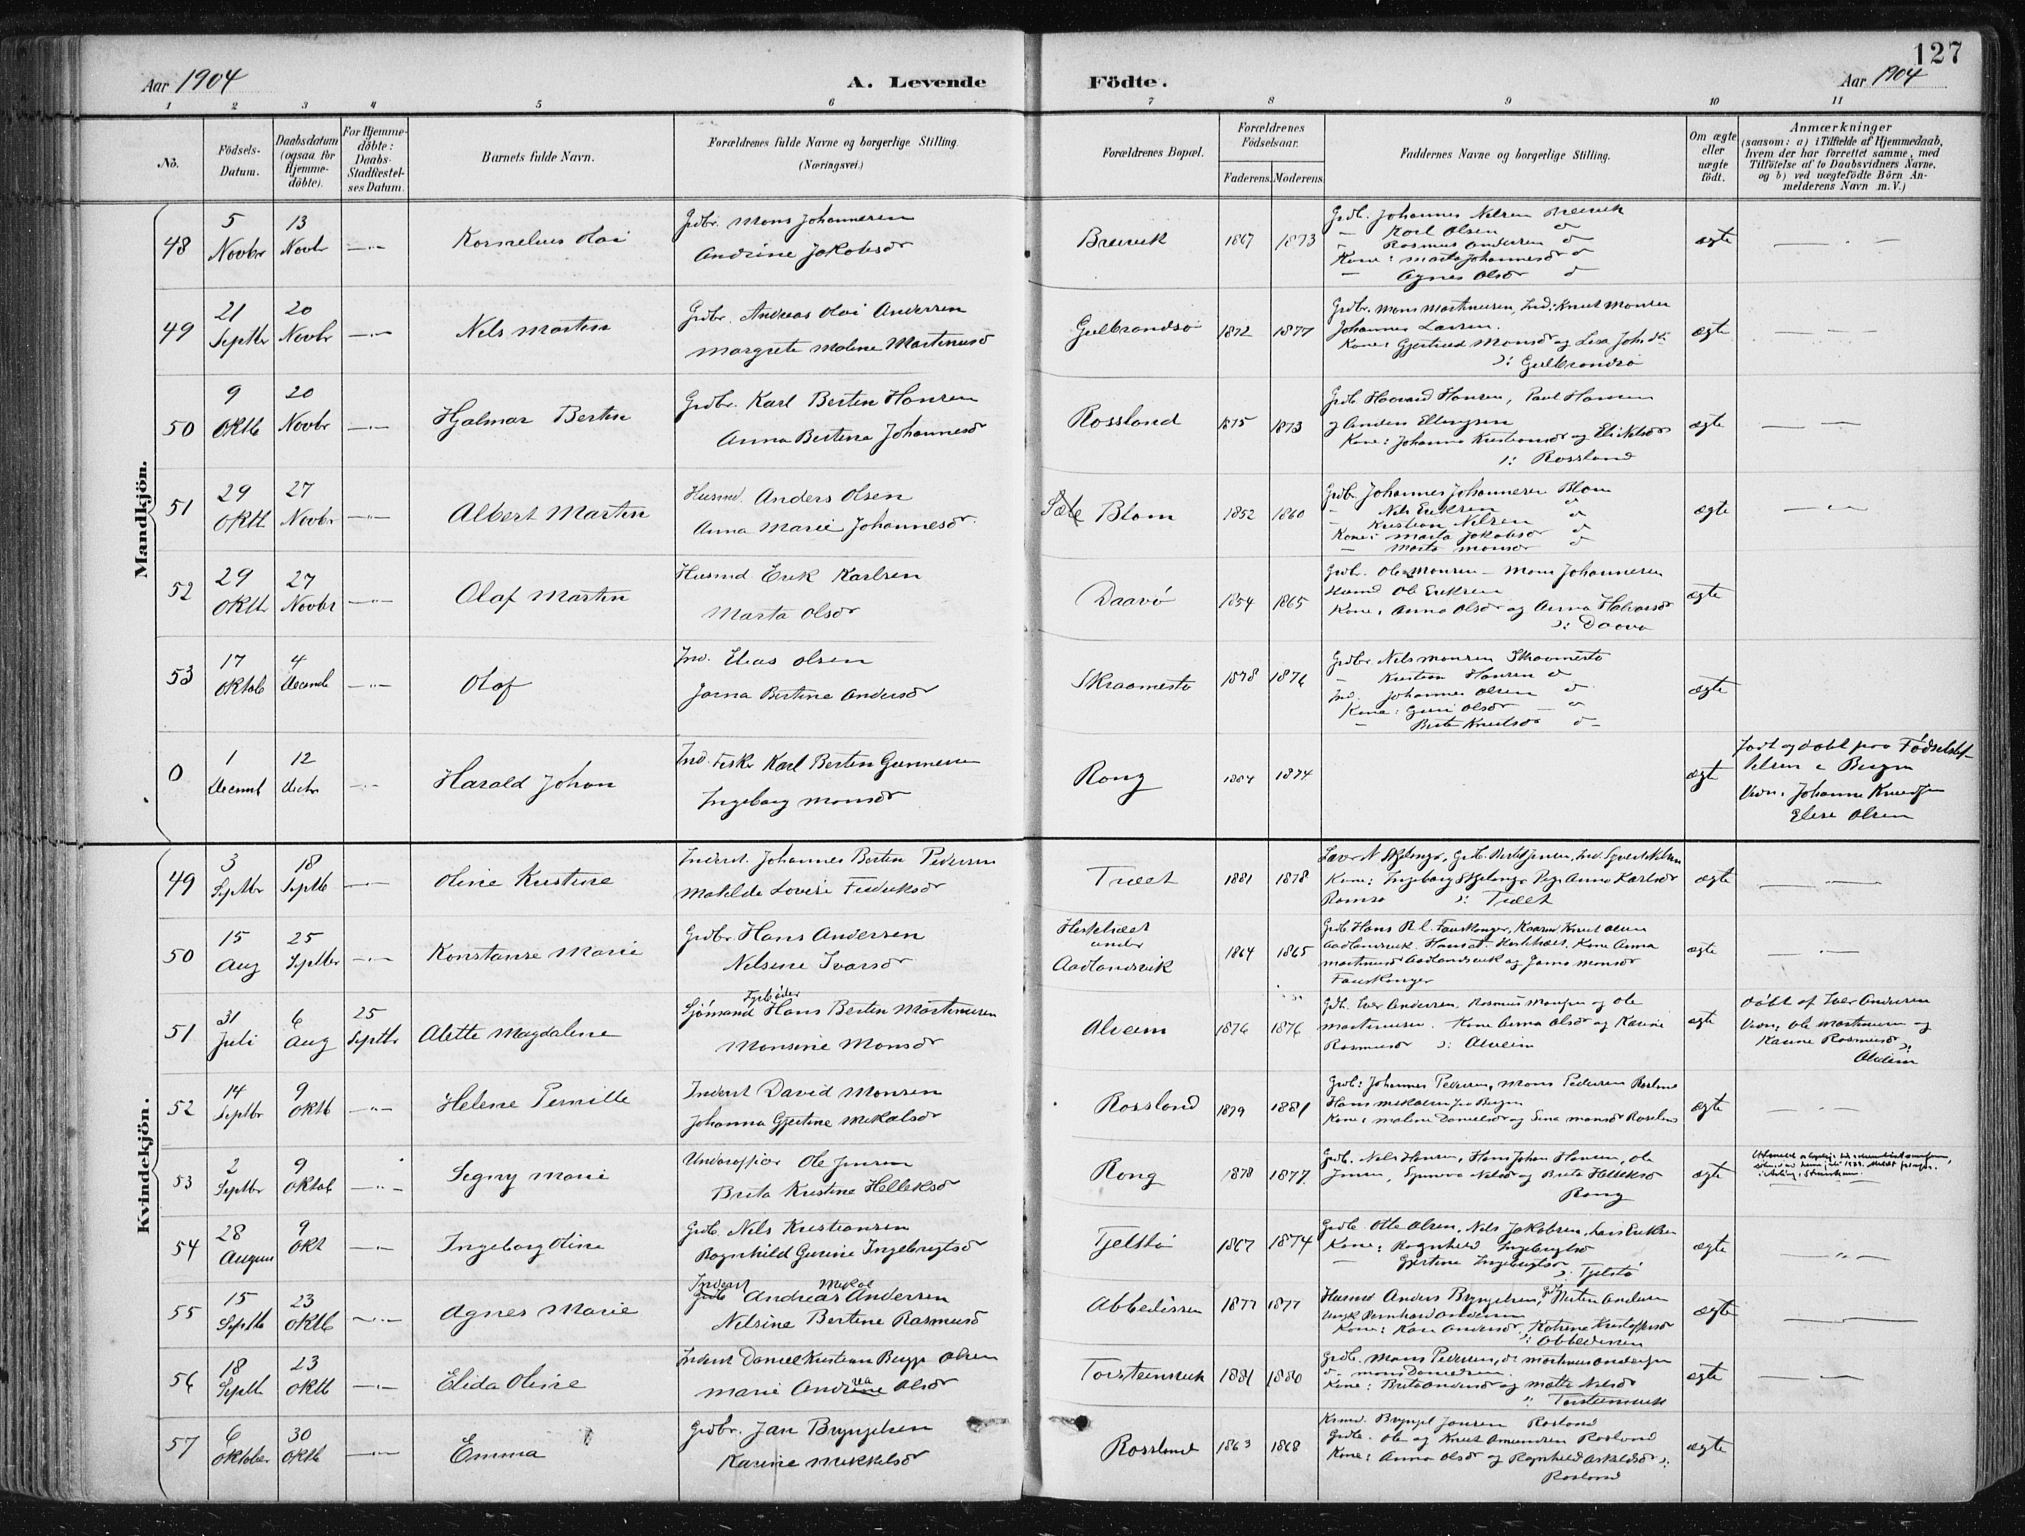 127
Aar 1904 A. Levende Födte. Aar 1904
1 2 3 4 5 6 7 8 9 10 11
No.
Födsels-Datum.
Daabsdatum (ogsaa for Hjemme-döbte).
For Hjemme-döbte: Daabs-Stadfæstel-ses Datum.
Barnets fulde Navn.
Forældrenes fulde Navne og borgerlige Stilling. (Næringsvei.)
Forældrenes Bopæl.
Forældrenes Födselsaar.
Faderens. Moderens.
Faddernes Navne og borgerlige Stilling.
Om ægte eller uægte födt.
Anmærkninger
(saasom: a) i Tilfælde af Hjemmedaab,
hvem der har forrettet samme, med
Tilföielse af to Daabsvidners Navne.
og b) ved uægtefödte Börn An-
melderens Navn m. V.)
Mandkjön.
48 5 Novbr 13 Novbr Kornelius Olai
Grdbr. Mons Johannesen
Andrine Jakobsdr
Breivik 1867 1873
Grdb. Johannes Nilsen Breivik
Karl Olsen do
Rasmus Andersen do
Kone: Marta Johannesdr do
Agnes Olsdr do
ægte
49 21 Septbr 20 Novbr Nils Martin
Grdbr. Andreas Olai Andersen
Margrete Malene Martinusd
Gulbrandsö 1872 1877
Grdbr. Mons Martinusen, Ind: Knut Monsen
Johannes Larsen.
Kone: Gjertrud Monsdr og Lisa Johsdr
ɔ: Gulbrandsö
ægte
50 9 Oktb 20 Novbr Hjalmar Bertin
Grdbr. Karl Bertin Hansen
Anna Bertina Johannesdr
Rossland 1875 1873
Grdb Haavard Hansen, Paul Hansen
og Anders Ellingsen
Kone: Johanna Kristiansdr og Eli Nilsdr
ɔ: Rossland
ægte
51 29 Oktb 27 Novbr Albert Martin
Husmd. Anders Olsen
Anna Marie Johannesdr.
Blom 1852 1860
Grdbr. Johannes Johannesen Blom
Nils Eriksen do
Kristian Nilsen do
Kone: Marta Jakobsdr do
Marta Monsdr do
ægte
52 29 Oktbr 27 Novbr Olaf Martin
Husmd Erik Karlsen
Marta Olsdr
Daavö 1854 1865
Grdbr. Ole Monsen - Mons Johannesen
Husmd Ole Eriksen
Kone: Anna Olsdr og Anna Halvorsdr
ɔ: Daavö
ægte
53 17 Oktob 4 Decemb Olaf
Ind. Elias Olsen
Jorna Bertine Andersdr
Skraamestö 1878 1876
Grdbr Nils Monsen Skraamestö
Kristian Hansen do
Ind. Johannes Olsen do
Kone: Guri Olsdr do
Berta Knutsdr do
ægte
0 1 Decemb 12 Decbr Harald Johan
Ind. Fisker Karl Bertin Gunnesen
Ingeborg Monsdr
Rong 1884 1874
ægte
Födt og döbt paa Födselsstif-
telsen i Bergen
Vidn: Johanne Knudsen
Elise Olsen
Kvindekjön.
49 3 Septbr 18 Septb Oline Kristine
Inderst. Johannes Bertin Pedersen
Matilde Lovise Fredriksdr
Tvedt 1881 1878
Kone: Ingeborg Pige Anna Karlsdr
ɔ: Tvedt
ægte
50 15 Aug 25 Septbr Konstanse Marie
Grdbr. Hans Andersen
Nilsine Ivarsdr
under
Aadlandsvik 1864 1865
Kone Anna
Martinusdr Aadlandsvik og Jorna Monsdr
Fauskanger
ægte
51 31 Juli 6 Aug 25 Septbr Alette Magdalene
Sjömand Fyrböder Hans Bertin Martinusen
Monsine Monsdr
Alveim 1876 1876
Grdb. Iver Andersen, Rasmus Monsen og Ole
Martinusen. Kone Anna Olsdr og Karine
Rasmusdr ɔ: Alveim
ægte
Döbt af Iver Andersen
Vidn, Ole Martinusen og
Karine Rasmusdr
ɔ: Alveim
52 14 Septbr 9 Oktb Helene Pernille
Inderst David Monsen
Johanna Gjertine Mikalsdr
Rossland 1879 1881
Grdb: Johannes Pedersen, Mons Pedersen Rosland
Hans Mikalsen fra Bergen
Kone: Malene Danielsdr og Sina Monsdr Rosland
ægte
53 2 Septbr 9 Oktob Segny Marie
Underofficer Ole Jensen
Brita Kristine Helleksdr
Rong 1878 1877
Grdb. Nils Hansen, Hans Johan Hansen, Ole
Jensen, Synneva Nilsdr og Brita Helleksdr
Rong
ægte
54 28 August 9 Okt Ingeborg Oline
Grdb. Nils Kristiansen
Ragnhild Gurine Ingebrigtsdr
Tjelstö 1867 1874
Grdb. Otte Olsen, Nils Jakobsen, Lars Eriksen
Kone: Ragnhild Ingebrigtsdr
Gjertine Ingebrigtsdr
ɔ: Tjelstö
ægte
55 15 Septb 23 Oktb Agnes Marie
Inderst Grdb Andreas Mikal Andersen
Nilsine Bertine Rasmusd
Abbedissen 1877 1877
Husmd Anders Bryngelsen, Bertin Andersen
Ungk Bernhard Andersen
Kone: Kari Andersdr. Katrine Kristoffersdr
ɔ: Abbedissen
ægte
56 18 Septb 23 Oktb Elida Oline
Inderst Daniel Kristian Berge Olsen
Marie Andrea Olsdr
Torsteinsvik 1881 1880
Grdb. Mons Pedersen, do Martinus Andersen
do Mons Danielsen.
Kone: Brita Andersdr og Mette Nilsdr
ɔ: Torsteinsvik
ægte
57 6 Oktober 30 Oktb Emma
Grdbr. Jan Bryngelsen
Karine Mikkelsdr
Rossland 1863 1868
Bryngel Jansen Rosland
Grdb. Ole og Knut Amundsen Rosland
Kone: Anna Olsdr og Ragnhild Askildsdr ɔ:
Rosland
ægte